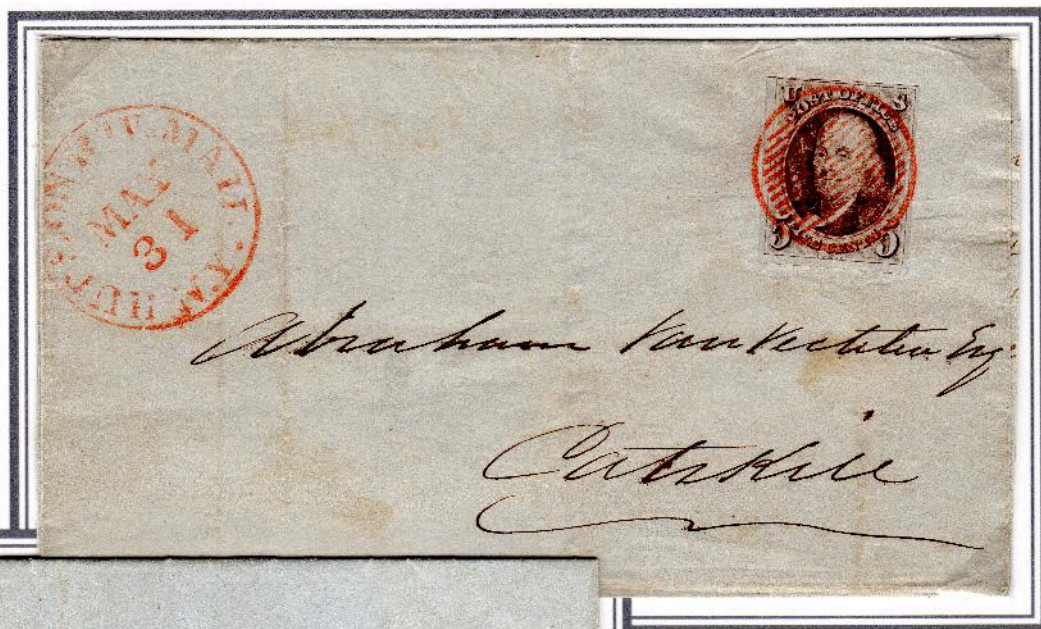 HUDSON RIV. MAIL. N.Y.
MAR
31
U S
POST OFFICE
FIVE CENTS
5 5
Abraham Van Vechten Esq
Catskill